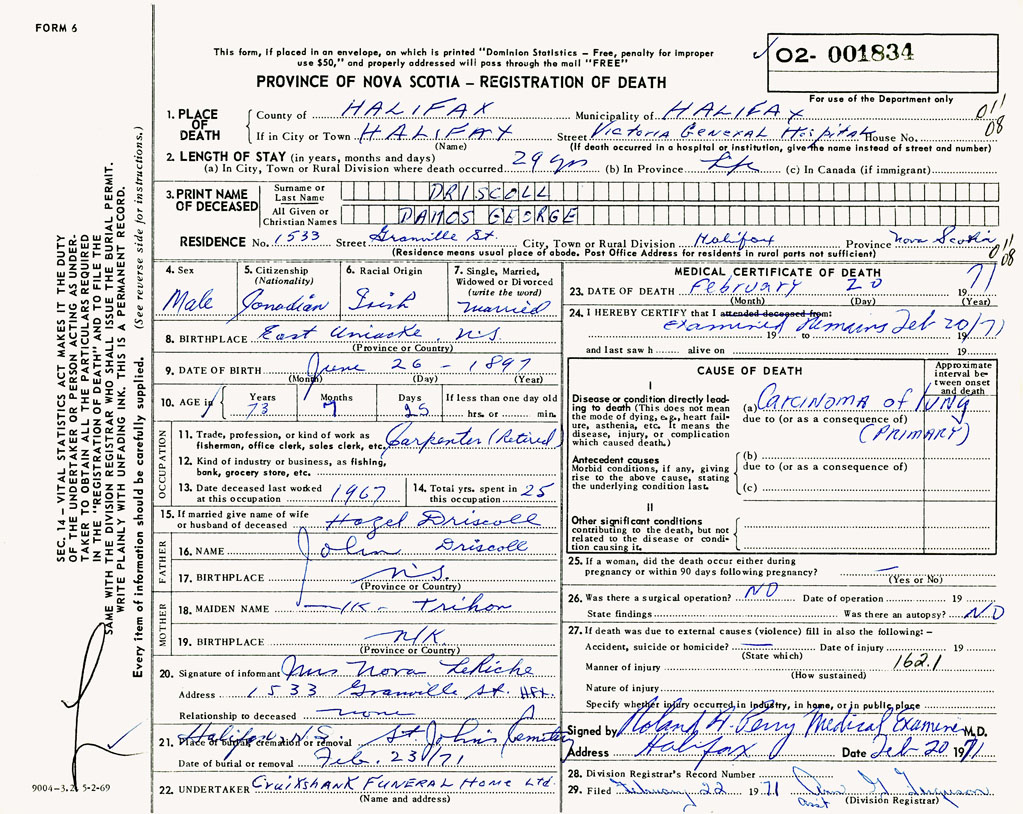 FORM 6
This form, if placed in an envelope, on which is printed "Dominion Statistics – Free, penalty for improper
use $50," and properly addressed will pass through the mail "FREE"
PROVINCE OF NOVA SCOTIA – REGISTRATION OF DEATH
O2- 001834
For use of the Department only
1. PLACE OF DEATH
County of HALIFAX Municipality of HALIFAX 011
If in City or Town HALIFAX Street Victoria General Hospital House No. 08
(Name) (If death occurred in a hospital or institution, give the name instead of street and number)
2. LENGTH OF STAY (in years, months and days)
(a) In City, Town or Rural Division where death occurred 29 yrs (b) In Province Life (c) In Canada (if immigrant)
3. PRINT NAME OF DECEASED
Surname or Last Name DRISCOLL
All Given or Christian Names DAMOS GEORGE
RESIDENCE No. 1533 Street Granville St. City, Town or Rural Division Halifax Province Nova Scotia 011
(Residence means usual place of abode. Post Office Address for residents in rural parts not sufficient) 08
4. Sex Male
5. Citizenship (Nationality) Canadian
6. Racial Origin Irish
7. Single, Married, Widowed or Divorced (write the word) Married
8. BIRTHPLACE East Uniacke, N.S.
(Province or Country)
9. DATE OF BIRTH June 26 - 1897
(Month) (Day) (Year)
10. AGE in Years 73 Months 7 Days 25 If less than one day old hrs. or min.
OCCUPATION
11. Trade, profession, or kind of work as
fisherman, office clerk, sales clerk, etc. Carpenter (Retired)
12. Kind of industry or business, as fishing,
bank, grocery store, etc.
13. Date deceased last worked
at this occupation 1967
14. Total yrs. spent in
this occupation 25
15. If married give name of wife
or husband of deceased Hazel Driscoll
FATHER
16. NAME John Driscoll
17. BIRTHPLACE N.S.
(Province or Country)
MOTHER
18. MAIDEN NAME
19. BIRTHPLACE N/K
(Province or Country)
20. Signature of informant Mrs Nora LeRiche
Address 1533 Granville St. Hfx.
Relationship to deceased none
21. Place of burial, cremation or removal Halifax, N.S. St John's Cemetery
Date of burial or removal Feb. 23/71
22. UNDERTAKER Cruikshank Funeral Home Ltd.
(Name and address)
MEDICAL CERTIFICATE OF DEATH
23. DATE OF DEATH February 20 1971
(Month) (Day) (Year)
24. I HEREBY CERTIFY that I attended deceased from:
Examined Remains Feb 20/71
19 to 19
and last saw h alive on 19
CAUSE OF DEATH
Approximate interval between onset and death
I
Disease or condition directly lead-
ing to death (This does not mean
the mode of dying, e.g., heart fail-
ure, asthenia, etc. It means the
disease, injury, or complication
which caused death.)
(a) Carcinoma of lung
due to (or as a consequence of)
(PRIMARY)
Antecedent causes
Morbid conditions, if any, giving
rise to the above cause, stating
the underlying condition last.
(b)
due to (or as a consequence of)
(c)
II
Other significant conditions
contributing to the death, but not
related to the disease or condi-
tion causing it.
25. If a woman, did the death occur either during
pregnancy or within 90 days following pregnancy? —
(Yes or No)
26. Was there a surgical operation? NO Date of operation 19
State findings Was there an autopsy? NO
27. If death was due to external causes (violence) fill in also the following: –
Accident, suicide or homicide? — Date of injury 19
(State which)
Manner of injury 162.1
(How sustained)
Nature of injury
Specify whether injury occurred in industry, in home, or in public place
Signed by Roland H. Perry Medical Examiner M.D.
Address Halifax Date Feb 20 1971
28. Division Registrar's Record Number
29. Filed February 22 1971 Ferguson
asst (Division Registrar)
SEC. 14 – VITAL STATISTICS ACT MAKES IT THE DUTY
OF THE UNDERTAKER OR PERSON ACTING AS UNDER-
TAKER TO OBTAIN ALL THE PARTICULARS REQUIRED
IN THE "REGISTRATION OF DEATH" AND TO FILE THE
SAME WITH THE DIVISION REGISTRAR WHO SHALL ISSUE THE BURIAL PERMIT.
WRITE PLAINLY WITH UNFADING INK. THIS IS A PERMANENT RECORD.
Every item of information should be carefully supplied. (See reverse side for instructions.)
9004-3.2. 5-2-69